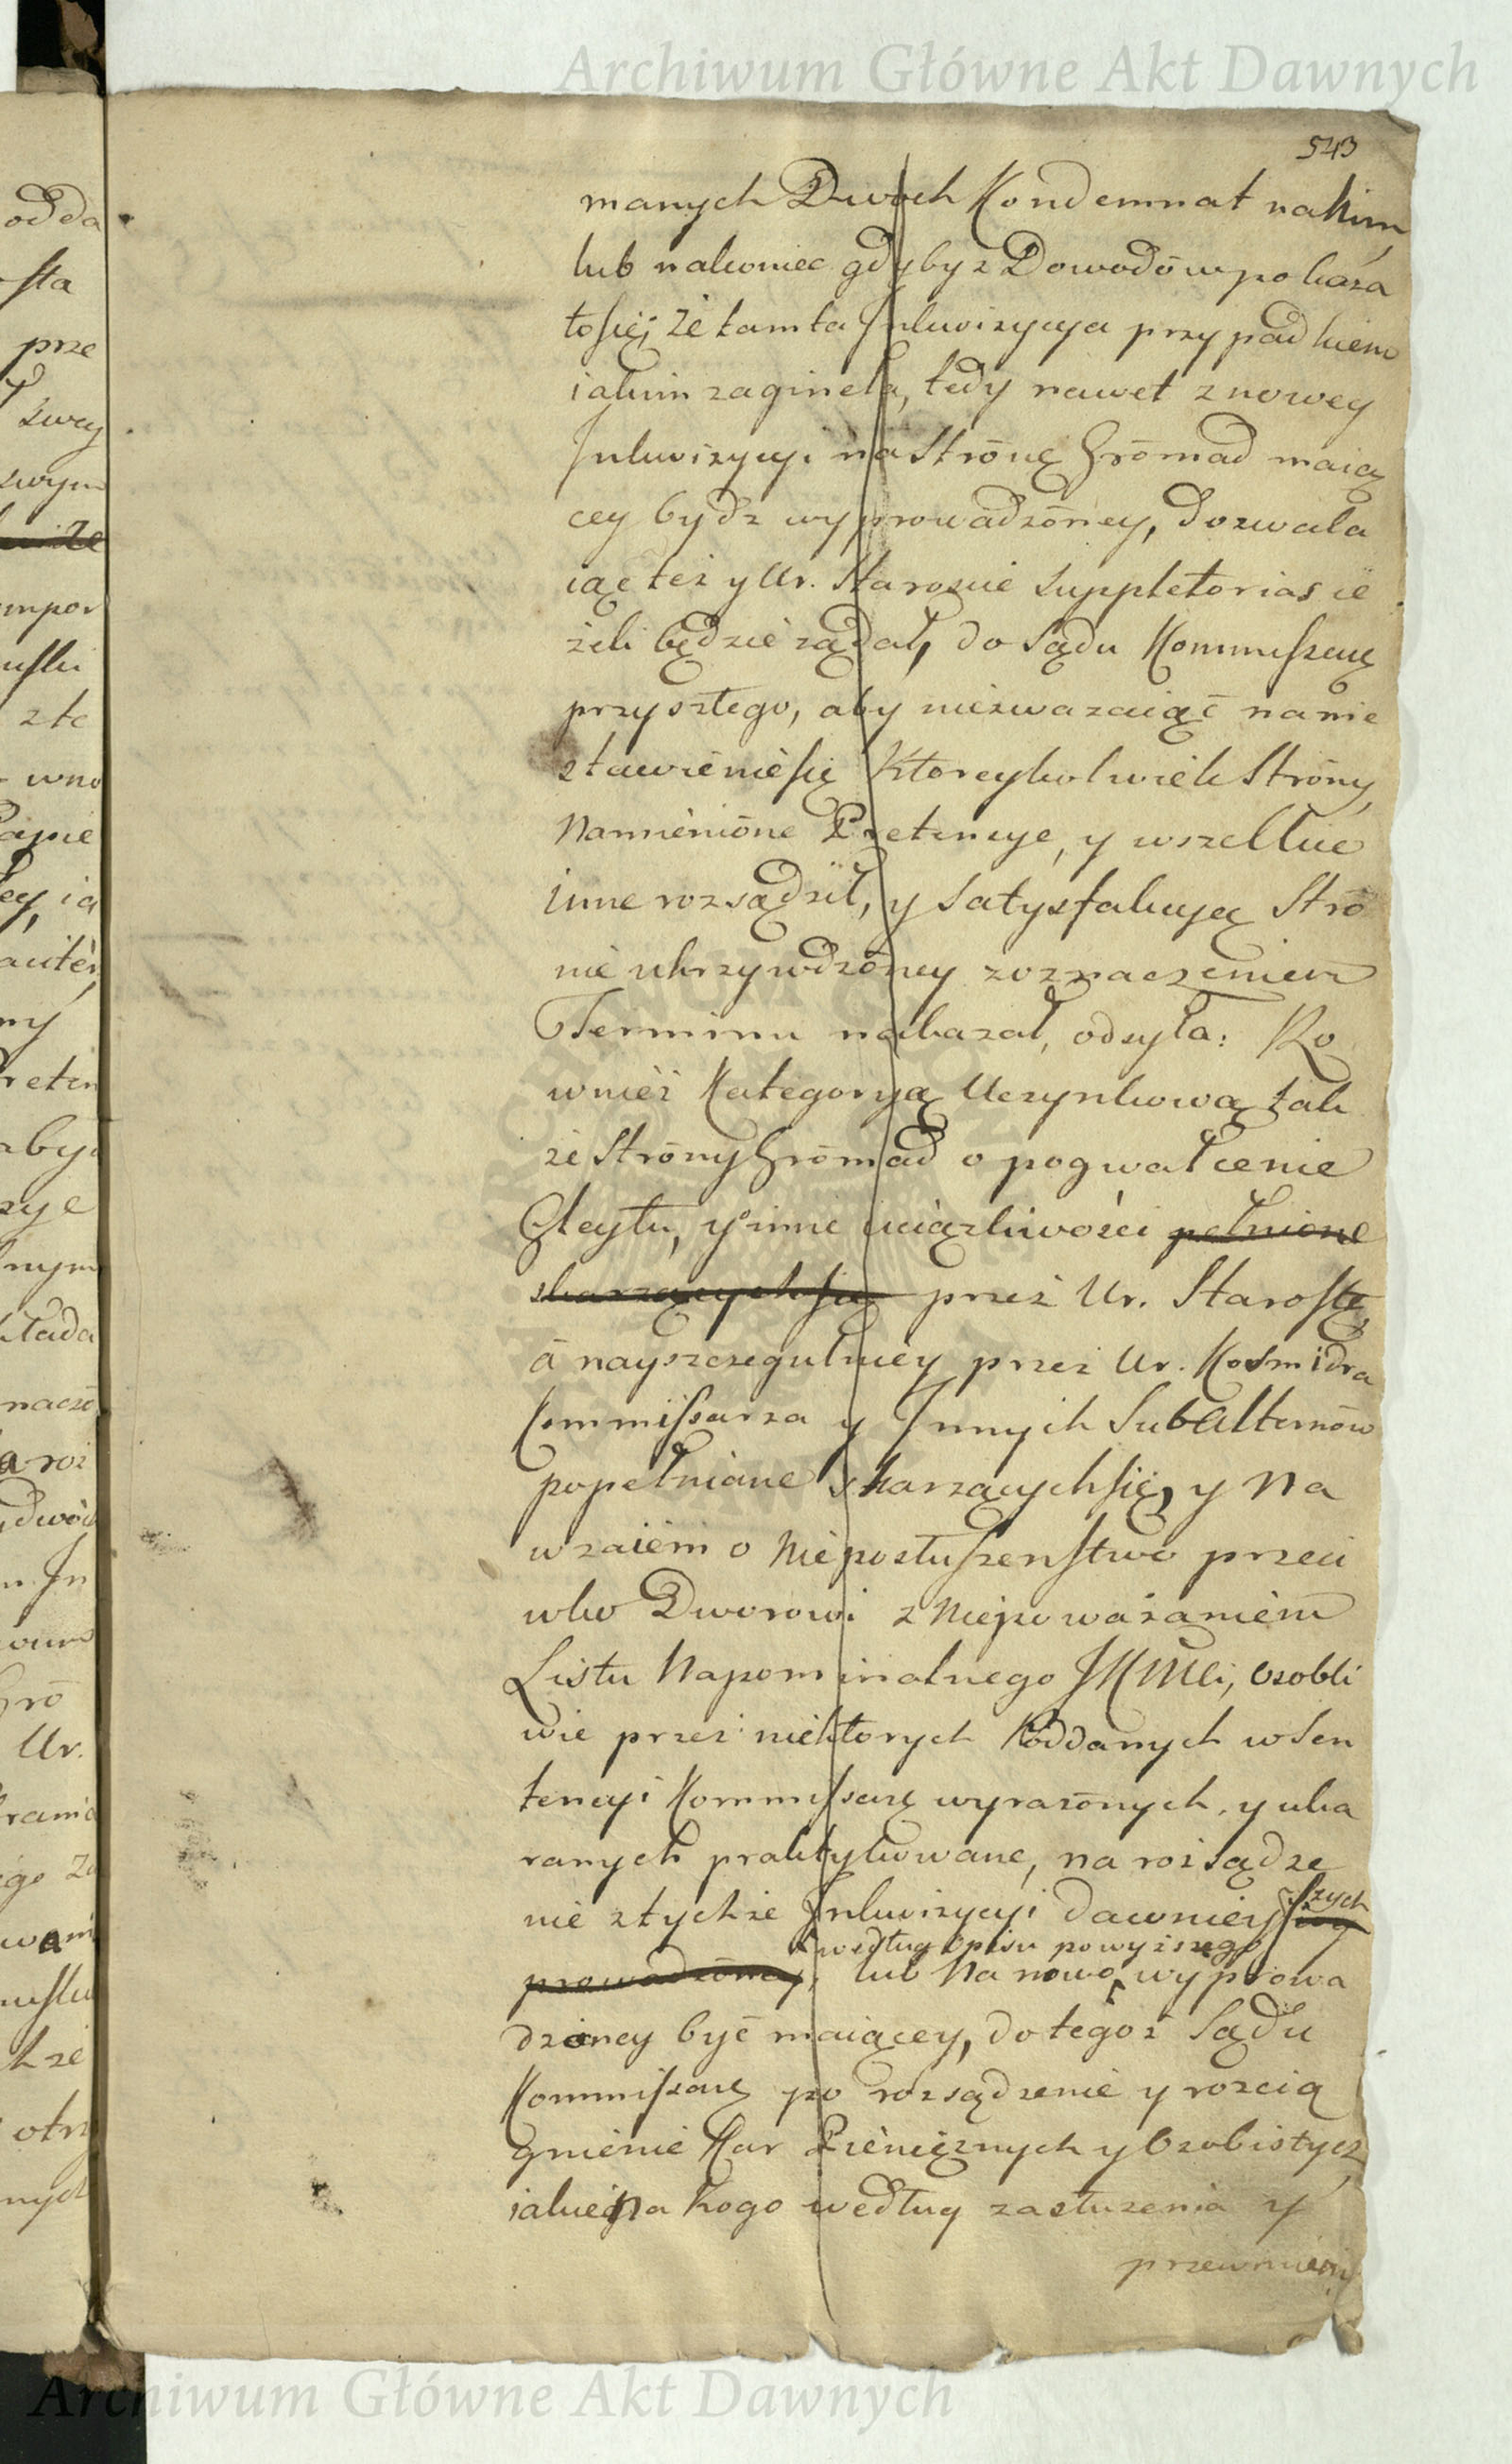 Archiwum Główne Akt Dawnych
543
manych Dwoch Kondemnat na kim,
lub nakoniec gdyby z Dowodōw pokaza
ło się, że tamta Jnkwizycya przypadkiem
iakim zagineła, tedy nawet z nowey
Jnkwizycyi na Strōnę Grōmad maią
cey bydz wyprowadzōney, dozwala
iąc też y Ur. Staroscie Suppletorias ie
żeli będzie żądał, do Sądu Kommissarz
przyszłego, aby nieuważaiąc na nie
stawienie się Ktoreykolwiek Strōny,
Namieniōne Pretensye, y wszelkie
inne rozsądził, y Satysfakcyą Strō
nie ukrzywdzōney z oznaczeniem
Terminu nakazał, odsyła: Ro
wnież Kategoryą Uczynkową tak
ze Strōny Grōmad o pogwałcenie
Gleytu, y inne uciązliwości pełnione
skarzących się przez Ur. Starostę,
ā nayszczegulniey przez Ur. Kosmidra
Kommissarza y Jnnych SubAlternōw
popełniane skarzących się, y Na
wzaiem o Nieposłuszenstwo przeci
wko Dworowi z Niepoważaniem
Listu Napominalnego JKMci, osobli
wie przez niektorych Poddanych w Sen
tencyi Kommissarz wyrazōnych, y uka
ranych praktykowane, na rozsądze
nie z tychże Jnkwizycyi dawniey szych
według opisu powyższego
prowadzōney, lub Na nowo wyprowa
dzōney być maiącey, do tegoż Sądu
Kommissarz po rozsądzenie y rozcią
gnienie Kar Pieniężnych y Osobistych
iakie Na kogo według zasłużenia y
Archiwum Główne Akt Dawnych